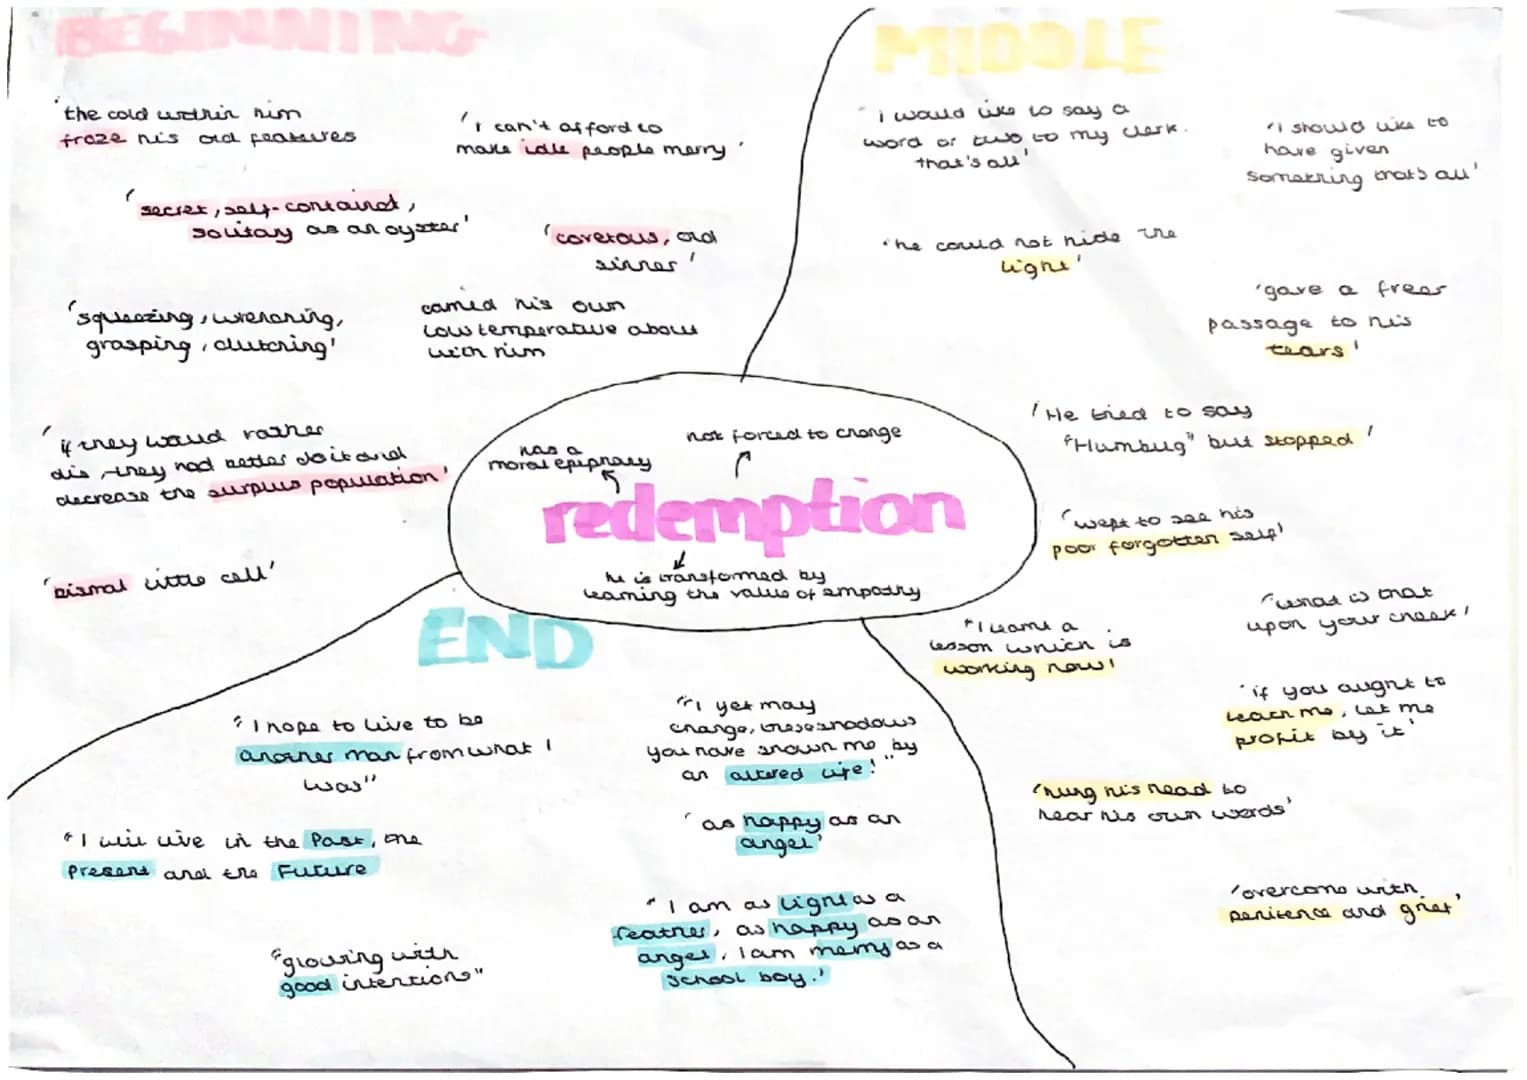 BEGINNING
'the cold within him
froze his old features
'i can't afford to
make idle people merry'
'secret, self-contained,
solitary as an oyster'
'covetous, old
sinner'
'squeezing, wrenching,
grasping, clutching'
carried his own
low temperature about
with him
'if they would rather
die, they had better do it and
decrease the surplus population'
'dismal little cell'
MIDDLE
'i would like to say a
word or two to my clerk.
that's all'
'I should like to
have given
something that's all'
'he could not hide the
light'
'gave a freer
passage to his
tears'
'He tried to say
"Humbug" but stopped'
'wept to see his
poor forgotten self'
'what is that
upon your cheek'
"I learnt a
lesson which is
working now'
'if you aught to
teach me, let me
profit by it'
'hung his head to
hear his own words'
'overcome with
penitence and grief'
has a
moral epiphany
not forced to change
redemption
he is transformed by
learning the value of empathy
END
"I hope to live to be
another man from what I
was"
"I yet may
change, these shadows
you have shown me by
an altered life!"
"I will live in the Past, the
Present and the Future
'as happy as an
angel'
"I am as light as a
feather, as happy as an
angel, i am merry as a
school boy.'
"glowing with
good intentions"